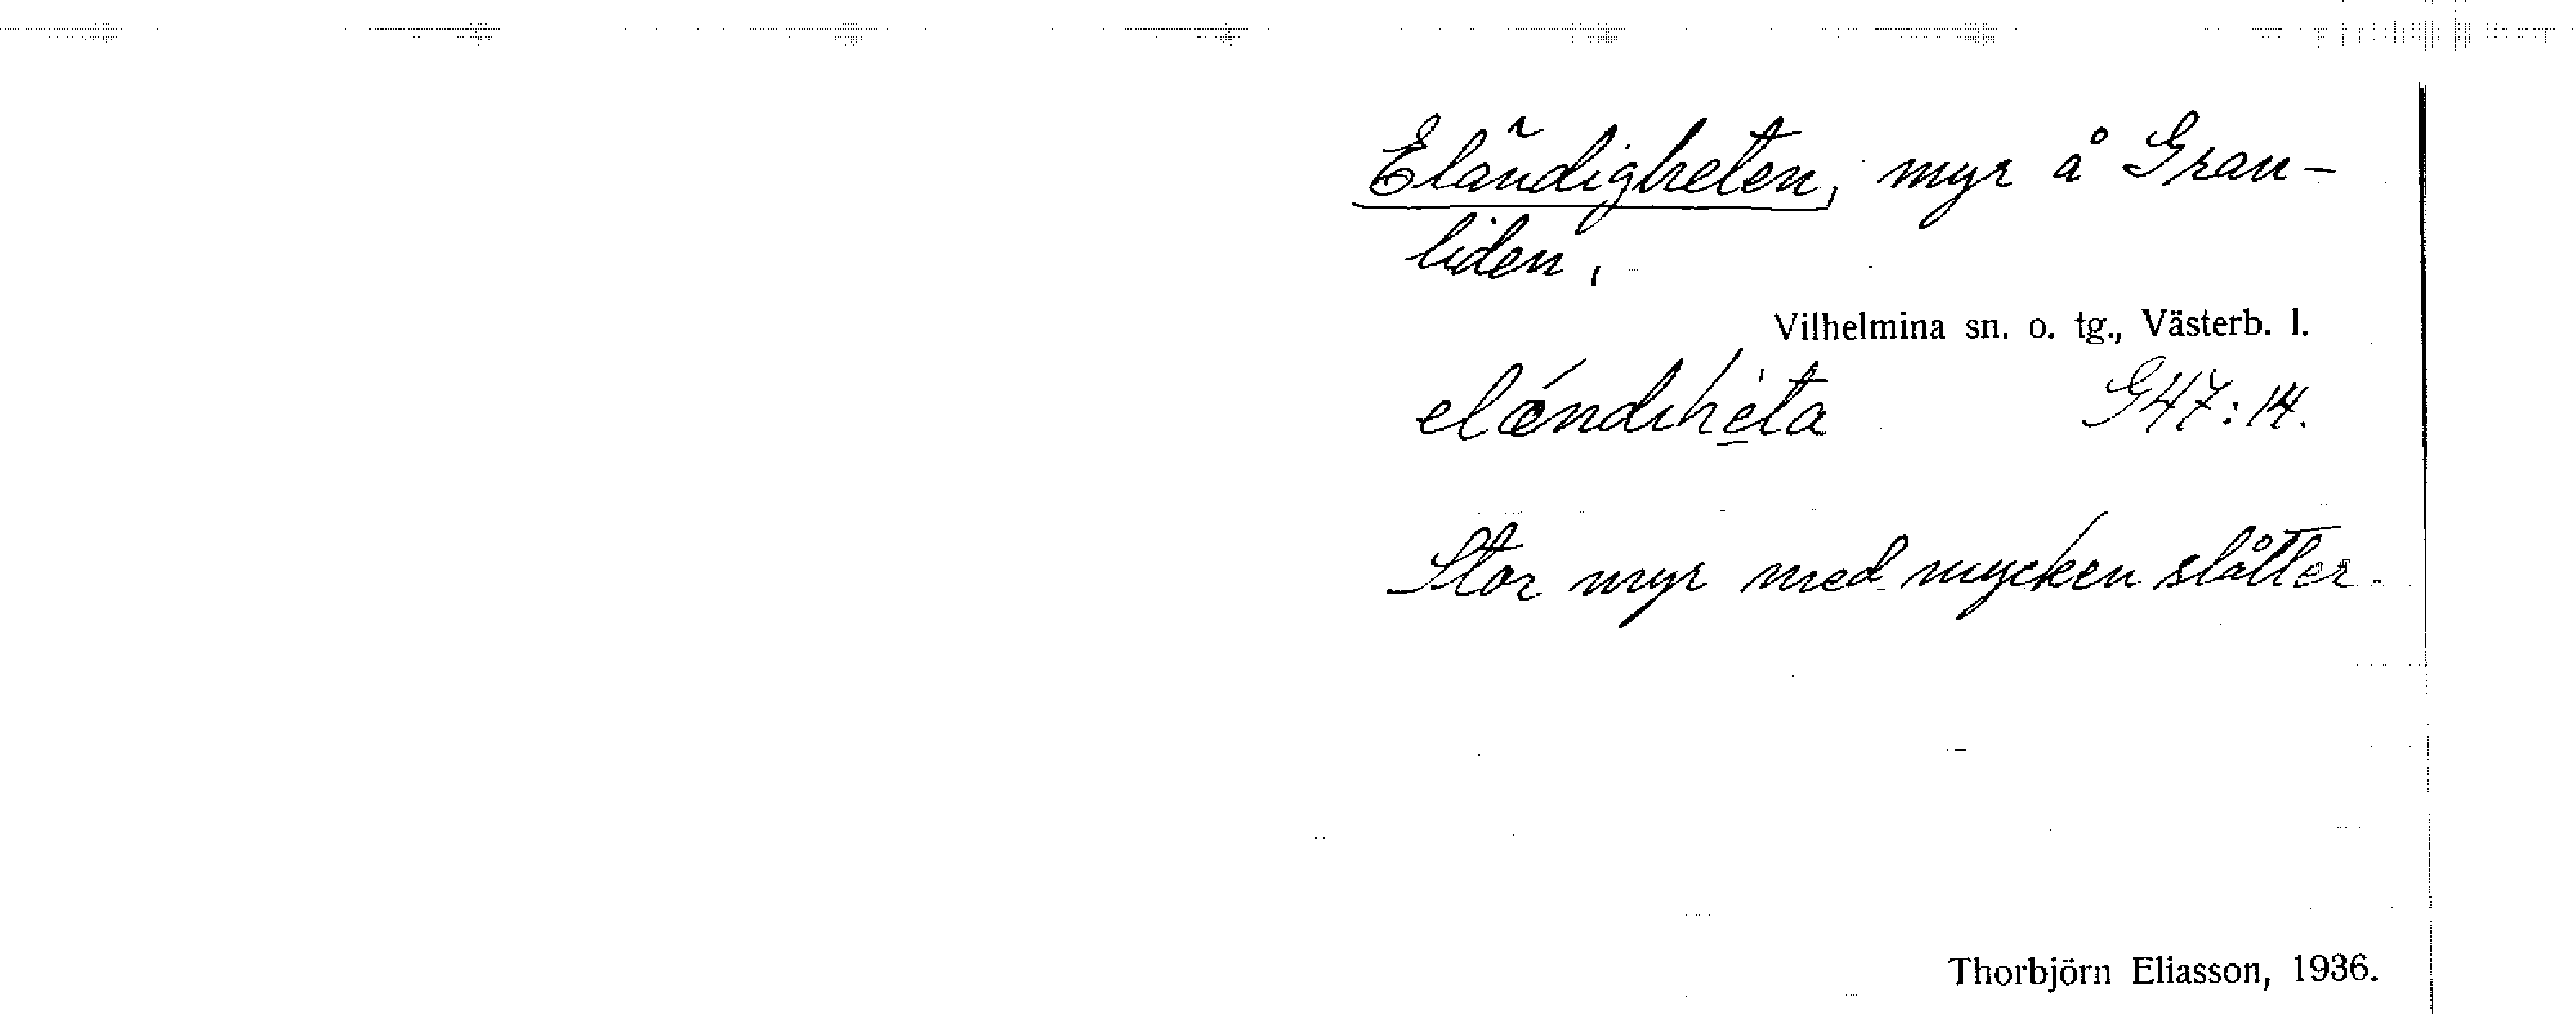 Eländigheten, myr å Gran-
liden.
Vilhelmina sn. o. tg., Västerb. l.
elǽndıhèta G47:14.
Stor myr med mycken slåtter.
Thorbjörn Eliasson, 1936.